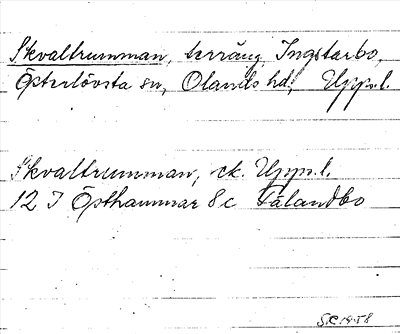 Skvaltrumman, terräng, Ingstarbo,
Österlövsta sn, Olands hd, Upps.l.
Skvaltrumman, ek. Upps.l.
12 I Östhammar 8 c Fälandbo
1958